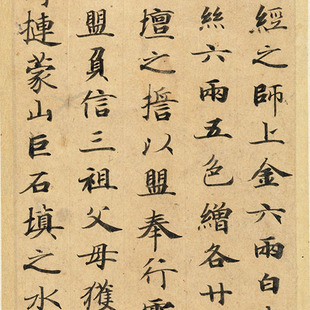 經之師上金六兩白
絲六兩五色繒各廿
壇之擔以盟奉行
盟負信三祖父母獲
摙蒙山巨石填之水